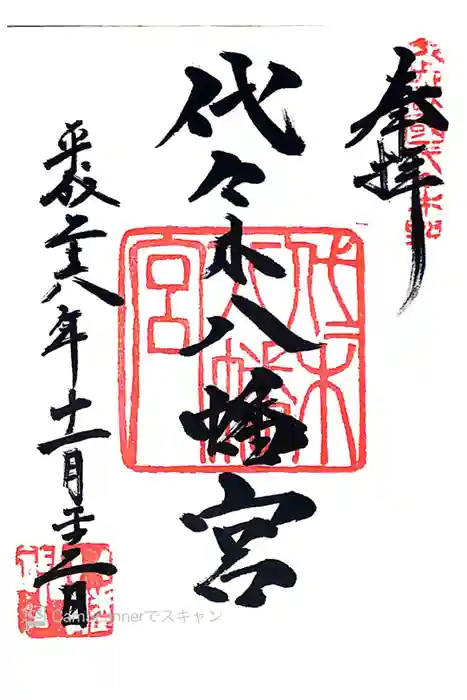 奉拝
代々木八幡宮
平成二十八年十一月二十二日
代々木八幡宮
CS CamScannerでスキャン